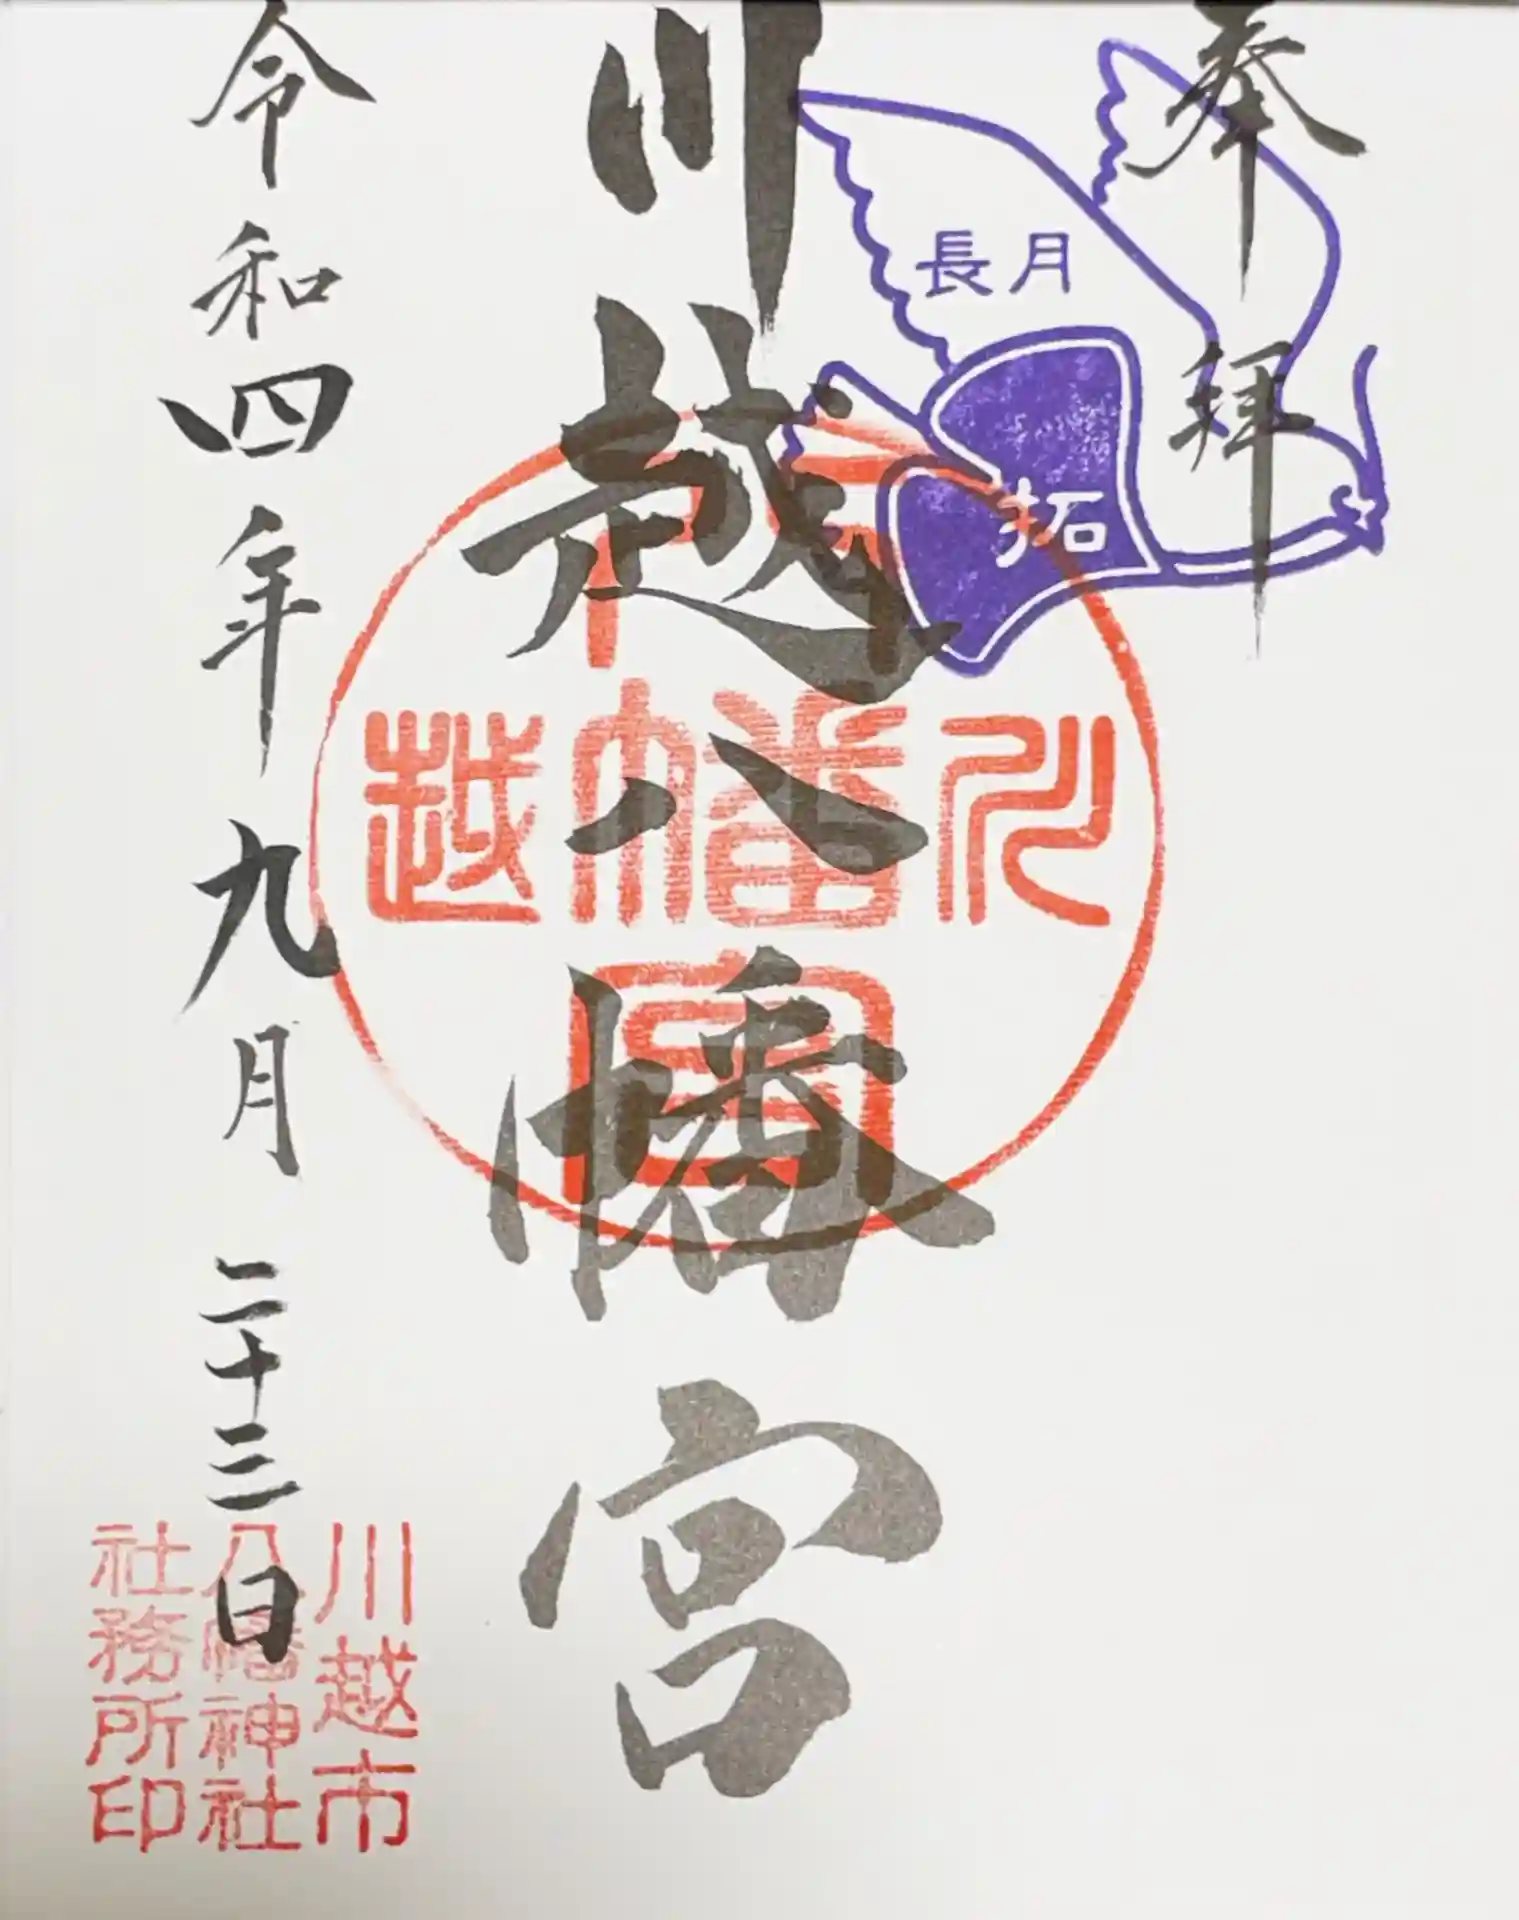 奉拝
長月
拓
川越八幡宮
八
川幡越
宮
令和四年九月二十三日
川越市
八幡神社
社務所印